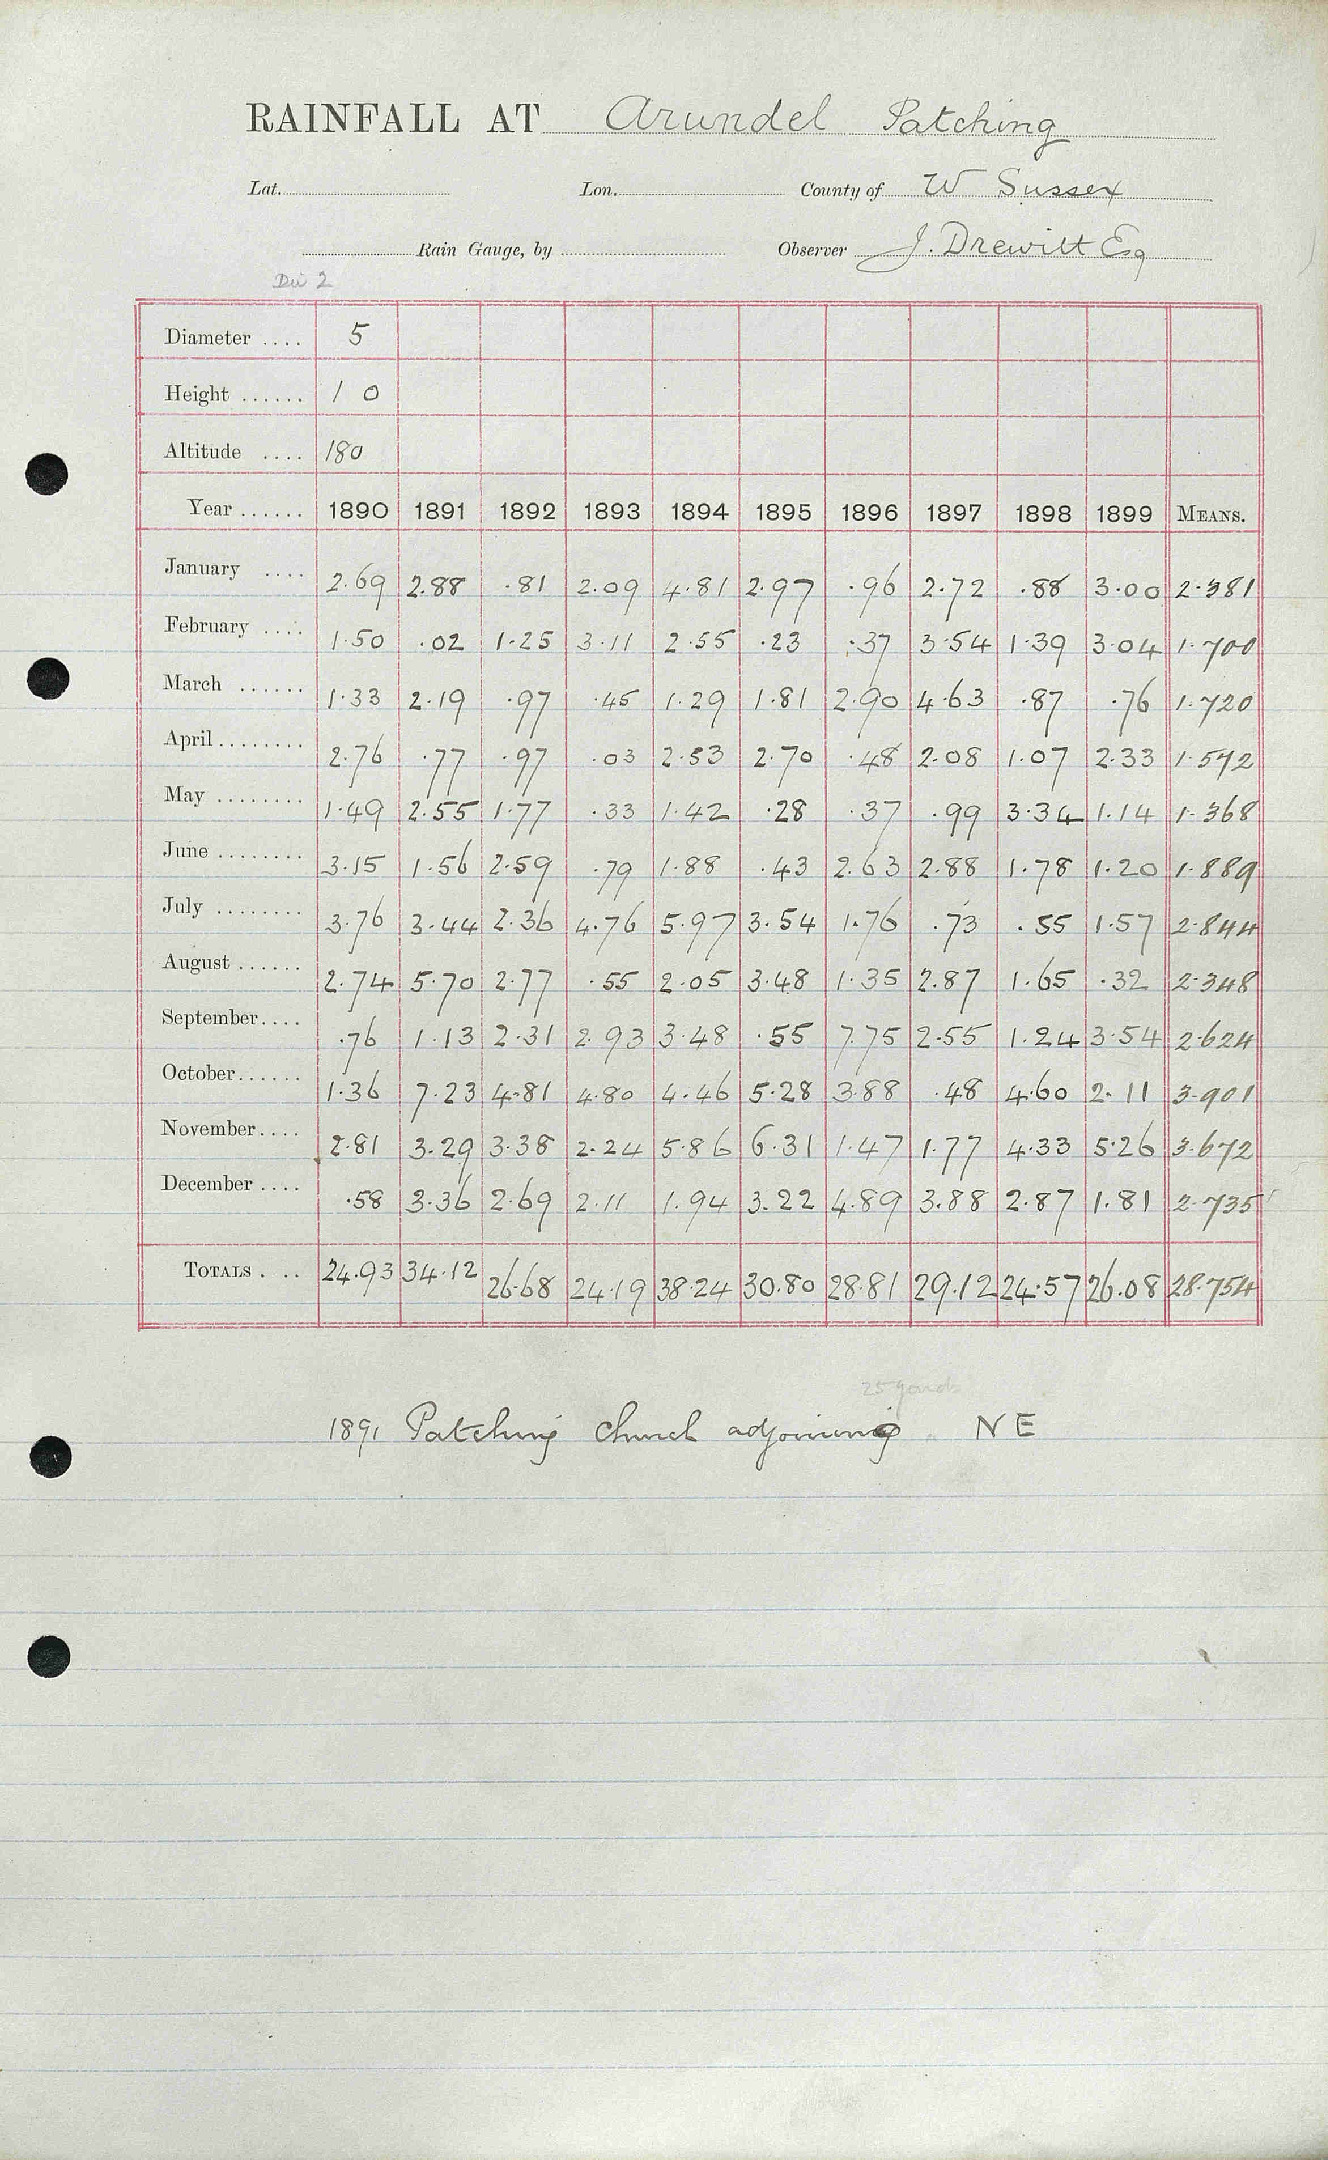 RAINFALL AT Arundel Patching
Lat. Lon. County of W Sussex
Rain Gauge, by Observer J. Drewitt Esq
Div 2
Diameter .... 5
Height ...... 1 0
Altitude .... 180
Year ...... 1890 1891 1892 1893 1894 1895 1896 1897 1898 1899 MEANS.
January .... 2.69 2.88 .81 2.09 4.81 2.97 .96 2.72 .88 3.00 2.381
February .... 1.50 .02 1.25 3.11 2.55 .23 .37 3.54 1.39 3.04 1.700
March ...... 1.33 2.19 .97 .45 1.29 1.81 2.90 4.63 .87 .76 1.720
April ........ 2.76 .77 .97 .03 2.53 2.70 .48 2.08 1.07 2.33 1.572
May ........ 1.49 2.55 1.77 .33 1.42 .28 .37 .99 3.34 1.14 1.368
June ........ 3.15 1.56 2.59 .79 1.88 .43 2.63 2.88 1.78 1.20 1.889
July ........ 3.76 3.44 2.36 4.76 5.97 3.54 1.76 .73 .55 1.57 2.844
August ...... 2.74 5.70 2.77 .55 2.05 3.48 1.35 2.87 1.65 .32 2.348
September .... .76 1.13 2.31 2.93 3.48 .55 7.75 2.55 1.24 3.54 2.624
October ...... 1.36 7.23 4.81 4.80 4.46 5.28 3.88 .48 4.60 2.11 3.901
November .... 2.81 3.29 3.38 2.24 5.86 6.31 1.47 1.77 4.33 5.26 3.672
December .... .58 3.36 2.69 2.11 1.94 3.22 4.89 3.88 2.87 1.81 2.735
TOTALS . .. 24.93 34.12 26.68 24.19 38.24 30.80 28.81 29.12 24.57 26.08 28.754
25 yards
1891 Patching Church adjoining NE